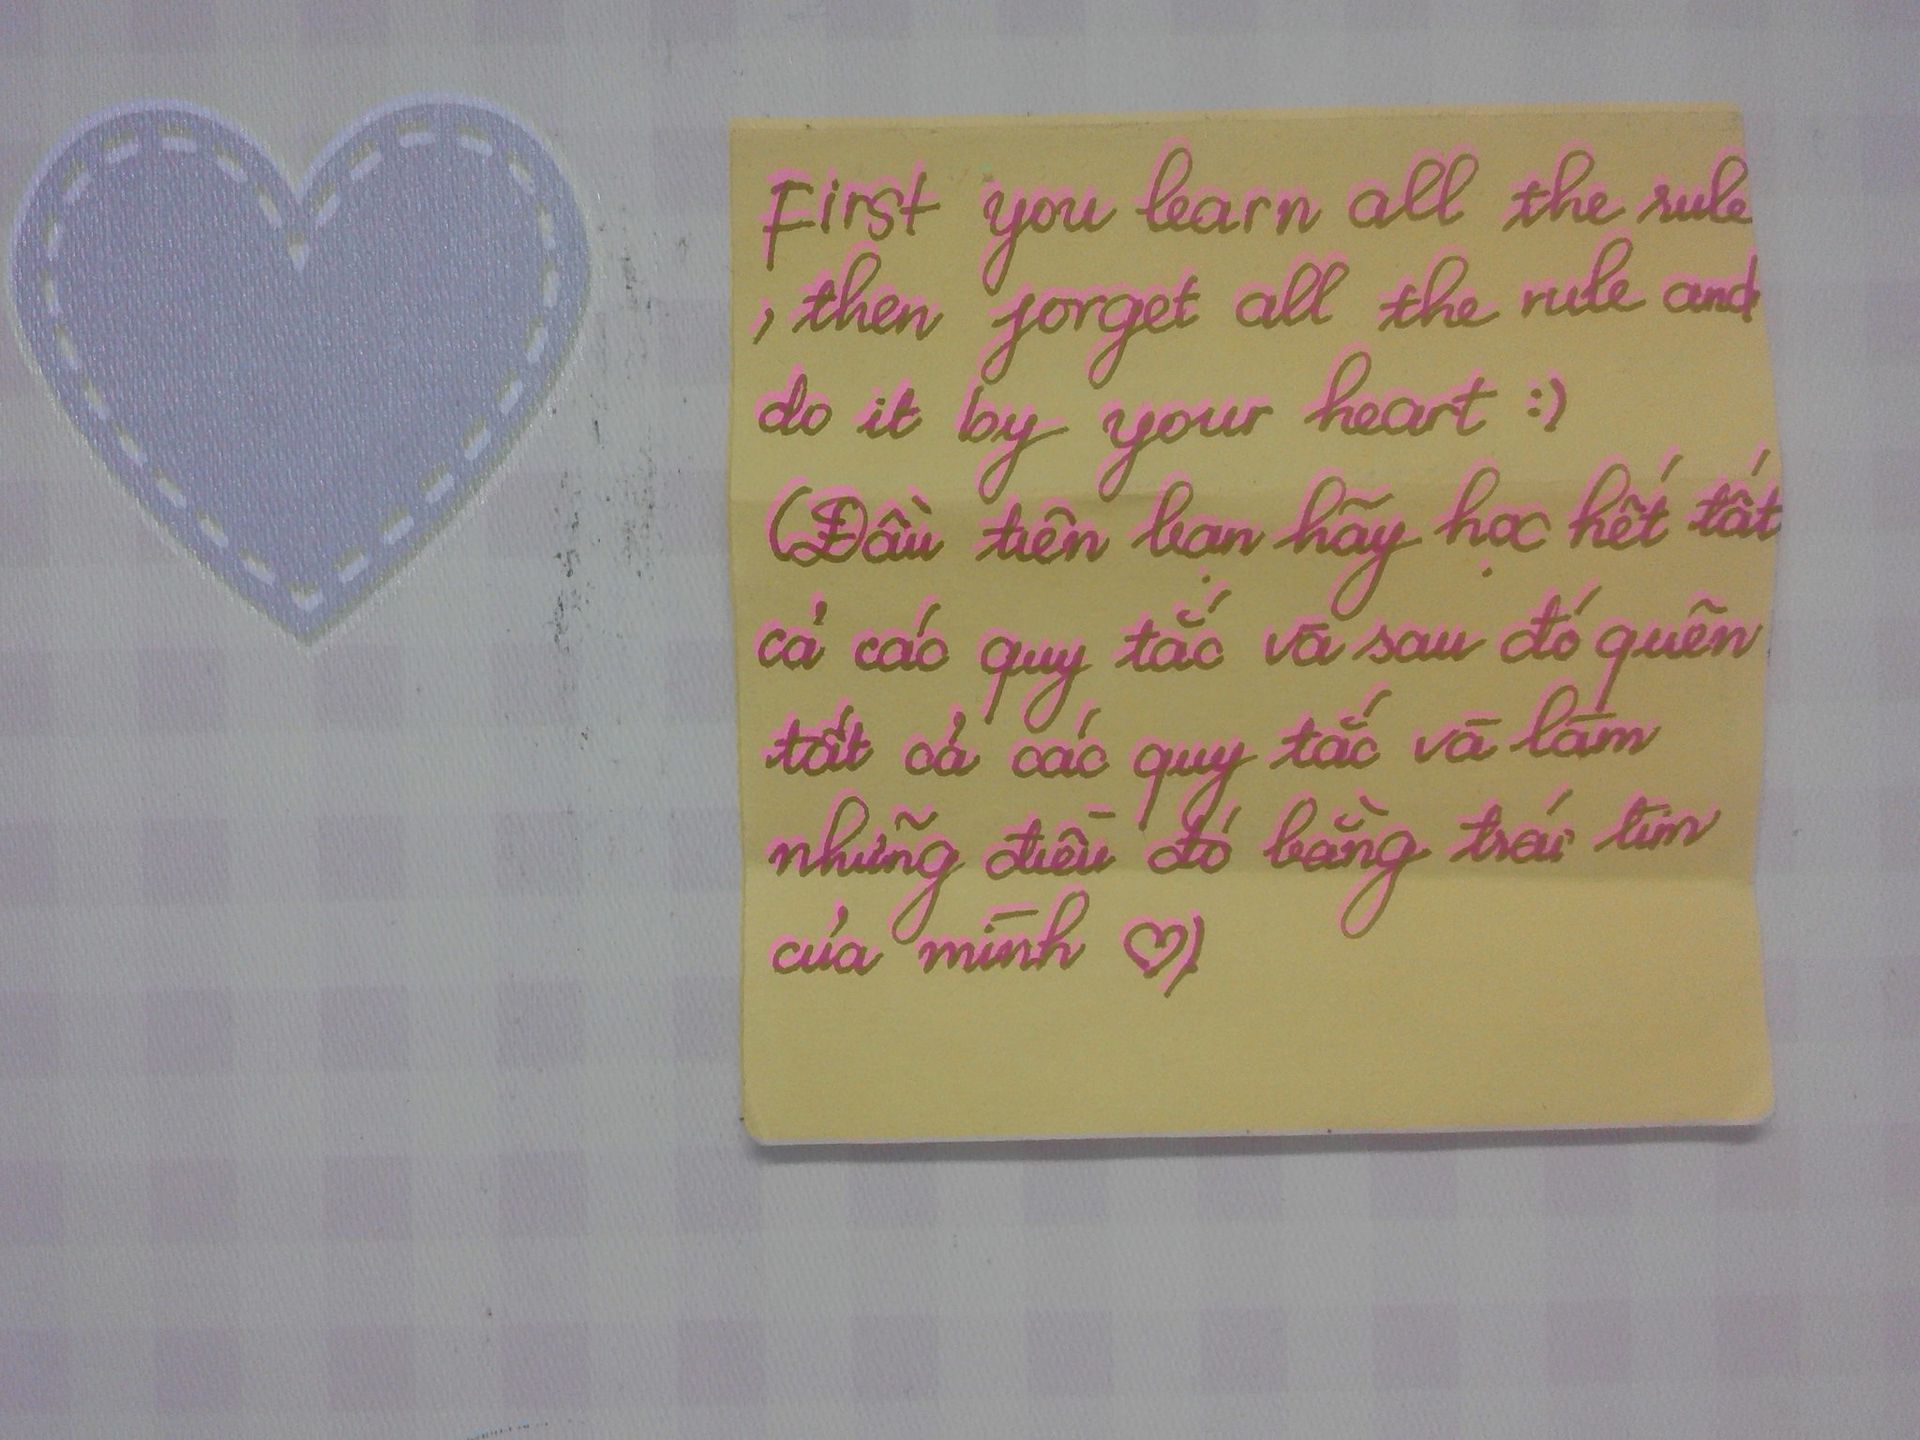 First you learn all the rule
, then forget all the rule and
do it by your heart :)
(Đầu tiên bạn hãy học hết tất
cả các quy tắc và sau đó quên
tất cả các quy tắc và làm
những điều đó bằng trái tim
của mình ♡)